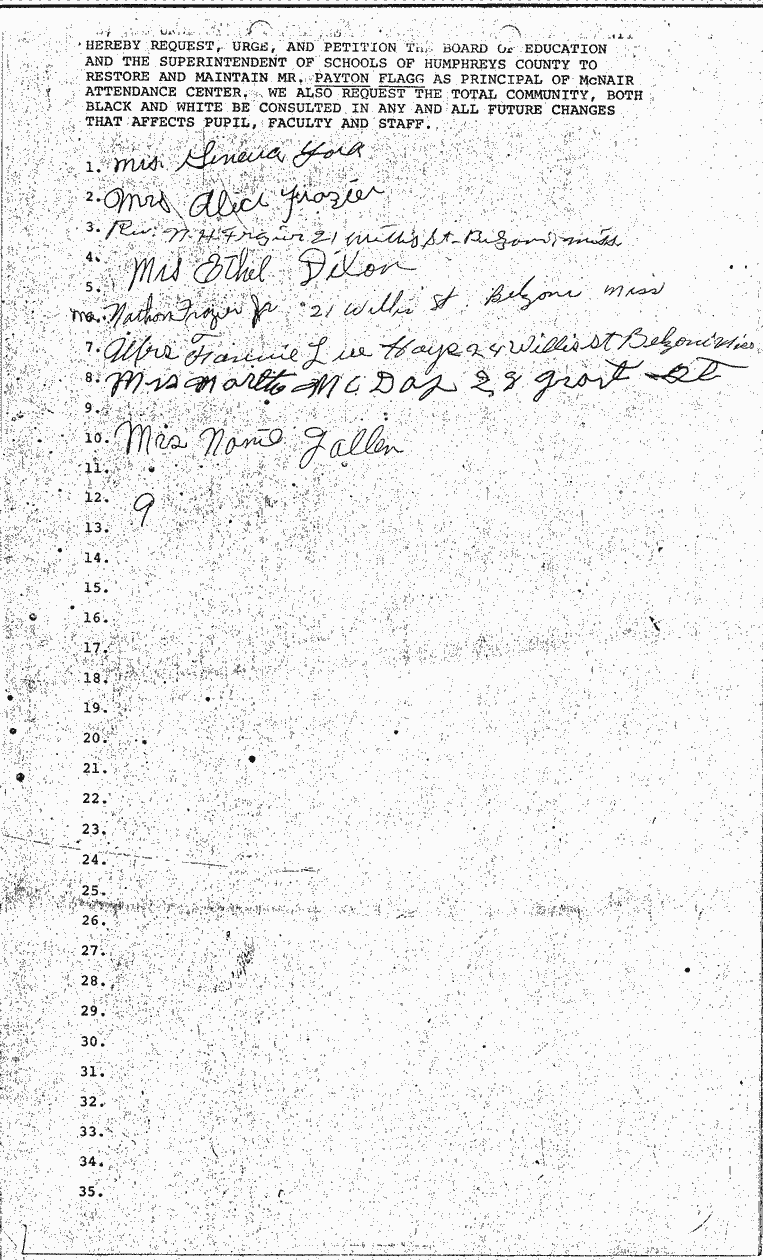 HEREBY REQUEST, URGE, AND PETITION THE BOARD OF EDUCATION
AND THE SUPERINTENDENT OF SCHOOLS OF HUMPHREYS COUNTY TO
RESTORE AND MAINTAIN MR. PAYTON FLAGG AS PRINCIPAL OF McNAIR
ATTENDANCE CENTER. WE ALSO REQUEST THE TOTAL COMMUNITY, BOTH
BLACK AND WHITE BE CONSULTED IN ANY AND ALL FUTURE CHANGES
THAT AFFECTS PUPIL, FACULTY AND STAFF.
1. Mrs. Geneva
2. Mrs Frazier
3. Rev. N. H. Frazier 21 Willis St. Belzoni, Miss
4. Mrs Ethel Dixon
5.
Nathon Frazier Jr 21 Willis St. Belzoni Miss
7. Mrs Fannie Lee Hays 24 Willis St Belzoni Miss
8. Mrs Martha McDay 28 St
9.
10. Mrs Gallen
11.
12. 9
13.
14.
15.
16.
17.
18.
19.
20.
21.
22.
23.
24.
25.
26.
27.
28.
29.
30.
31.
32.
33.
34.
35.